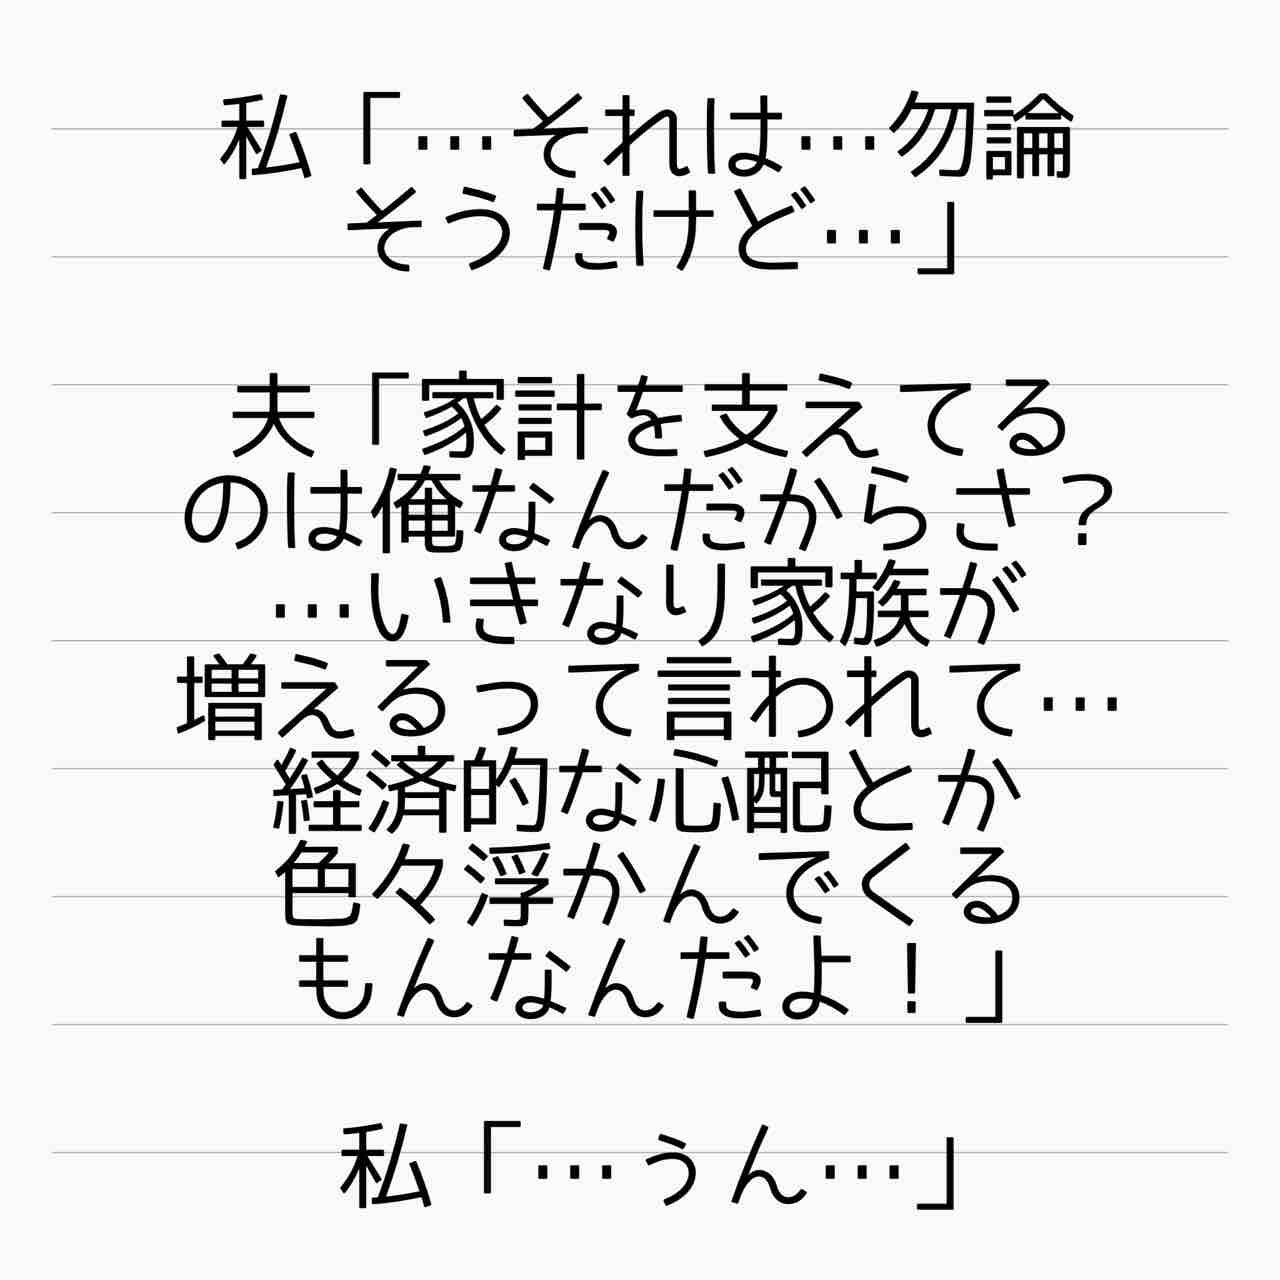 私「…それは…勿論
そうだけど…」
夫「家計を支えてる
のは俺なんだからさ？
…いきなり家族が
増えるって言われて…
経済的な心配とか
色々浮かんでくる
もんなんだよ！」
私「…ぅん…」